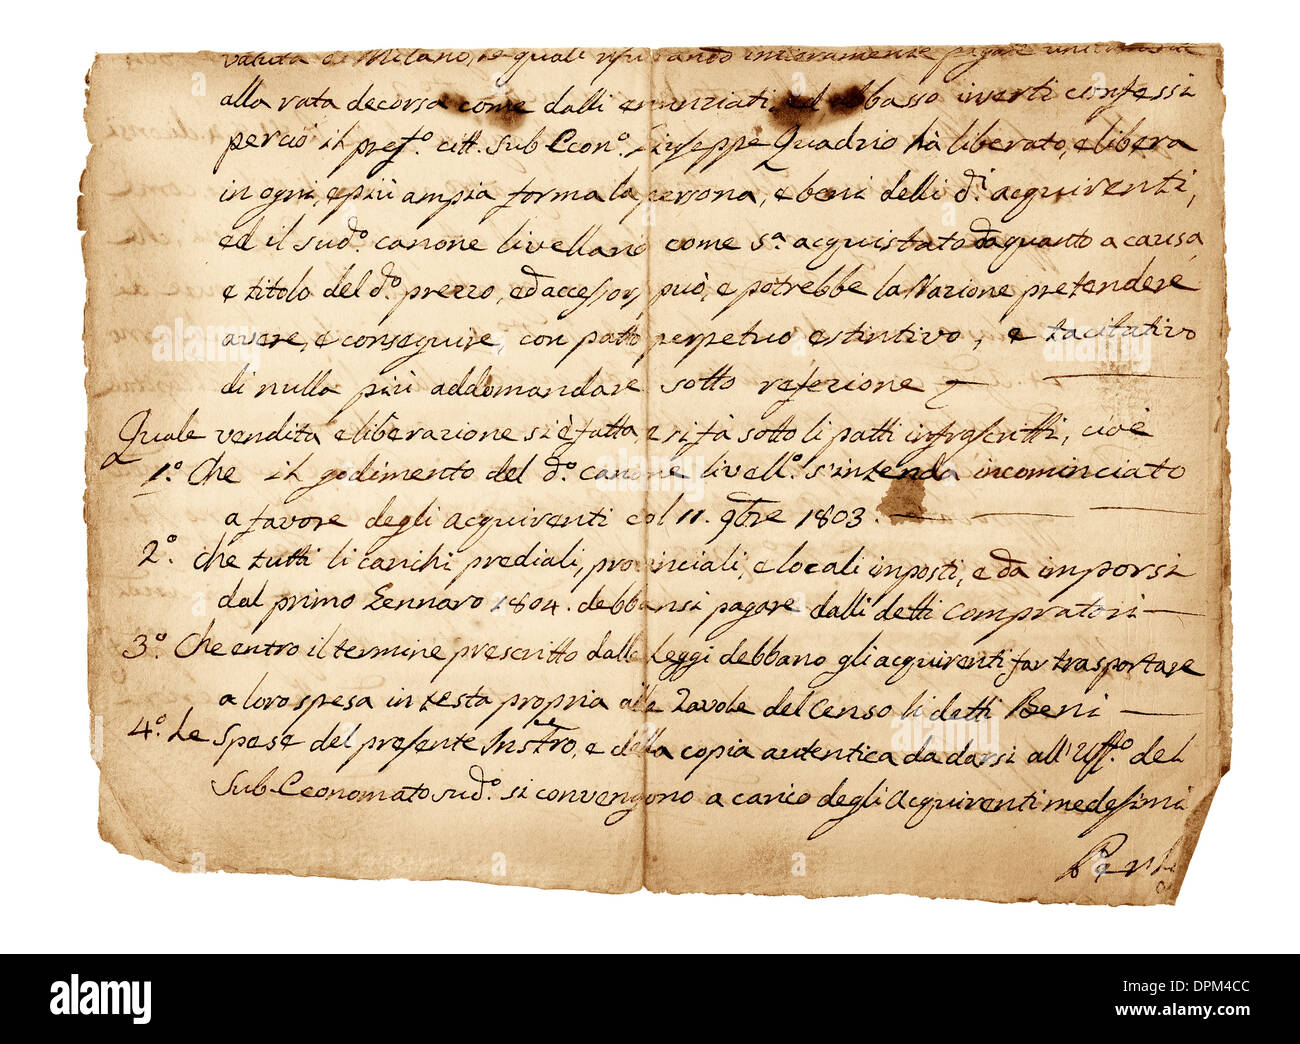 valuta di Milano, le quali
alla rata decorsa come dalli enunziati, ed abbasso inserti confessi
perciò il pref.º citt. Sub Econ.º Giuseppe Quadrio hà liberato, e libera
in ogni, e più ampia forma la persona, e beni delli d.i acquirenti,
ed il sud.º canone livellario come s.a acquistato da quanto a causa,
e titolo del d.º prezzo, ed accessorj può, e potrebbe la Nazione pretendere
avere, e conseguire, con patto perpetuo estintivo, e tacitativo
di nulla più addomandare sotto refezione
Quale vendita e liberazione si è fatta, e si fà sotto li patti infrascritti, cioè
1.º Che il godimento del d.º canone livell.º s'intenda incominciato
a favore degli acquirenti col 11. 9bre 1803.
2.º Che tutti li carichi prediali, provinciali, e locali imposti, e da imporsi
dal primo Gennaro 1804. debbansi pagare dalli detti compratori
3.º Che entro il termine prescritto dalle Leggi debbano gli acquirenti far trasportare
a loro spesa in testa propria alle Tavole del Censo li detti Beni
4.º Le Spese del presente Instro, e della copia autentica da darsi all'Uff.º del
Sub-Economato sud.º si convengono a carico degli Acquirenti medesimi
alamy
alamy
alamy
alamy
a
a
a
a
alamy
Image ID: DPM4CC
www.alamy.com